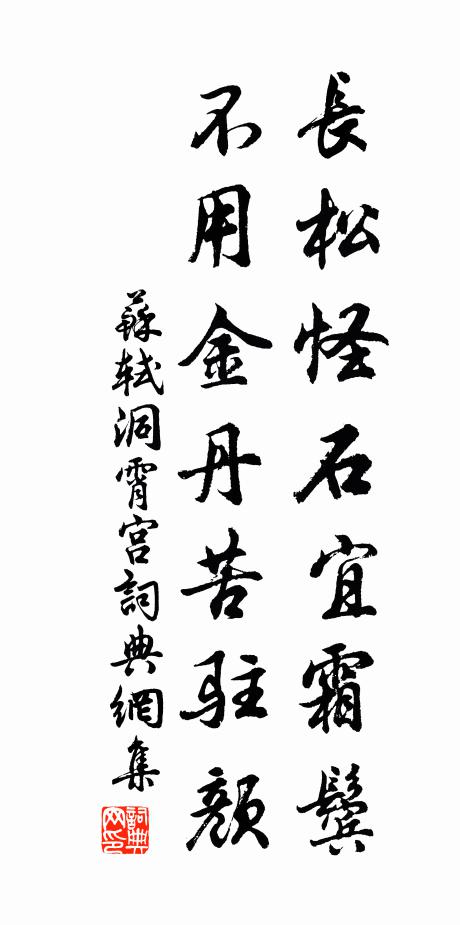 長松怪石宜霜鬢
不用金丹苦駐顏
蘇軾洞霄宮詞典網集
詞典
网印